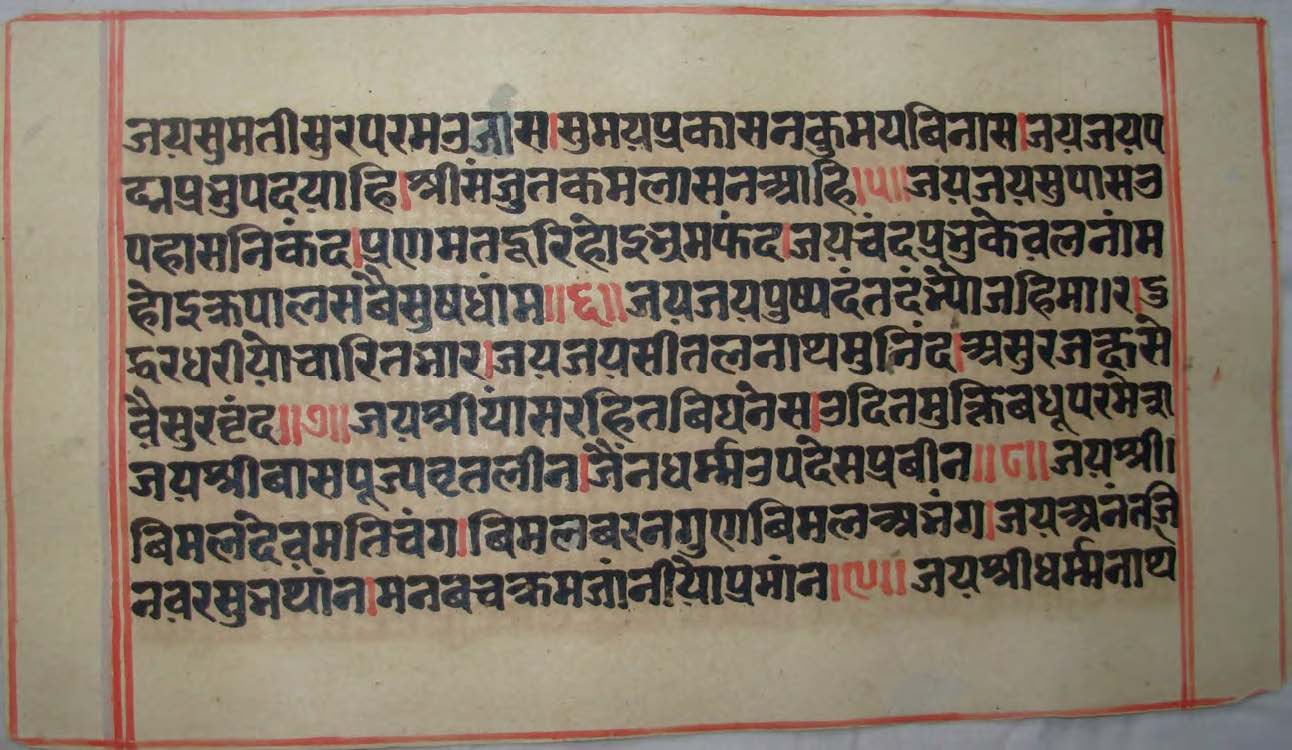 जयसुमतीसुरपरमउजास।सुमयप्रकासनकुमयबिनास।जयजयप
द्मप्रभुपदयाहि।श्रीसंजुतकमलासनआहि।५॥जयजयसुपासउ
पहासनिकंद।प्रणमतदूरिहोइभ्रमफंद।जयचंदप्रभुकेवलनांम
होइक्रपालसबैसुषधांम॥६॥जयजयपुष्पदंतदंभ्यौजहिमार।दु
द्धरधरीयोचारितभार।जयजयसीतलनाथमुनिंद।असुरजक्षसे
वैसुरवृंद॥७॥जयश्रीयांसरहितबिघनेस।उदितमुक्तिबधूपरमे
जयश्रीबासपूज्यवृतलीन।जैनधर्म्मउपदेसप्रबीन॥८॥जयश्री।
बिमलदेवमतिचंग।बिमलबरनगुणबिमलअनंग।जयअनंतजि
नवरसुभथांन।मनबचक्रमजांनीयौप्रमांन।९॥जयश्रीधर्म्मनाथ